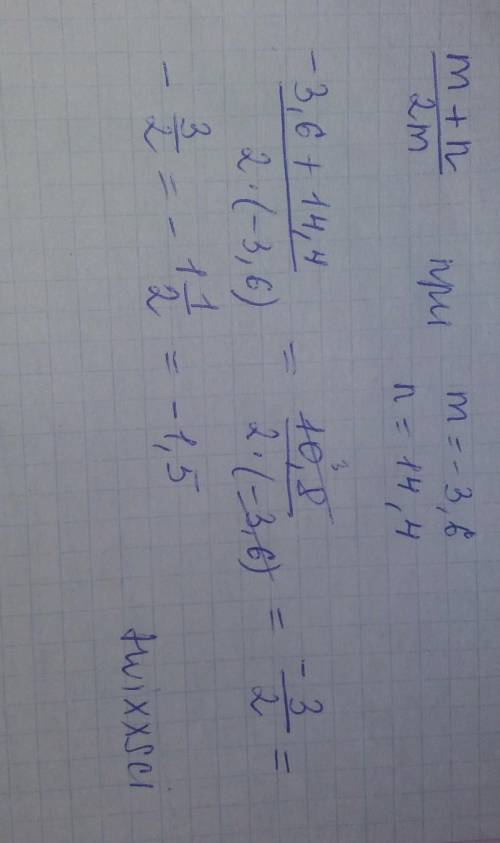 m + n / 2m при m = -3,6
n = 14,4
-3,6 + 14,4 / 2·(-3,6) = 10,8 3 / 2·(-3,6) = -3/2 =
- 3/2 = - 1 1/2 = -1,5